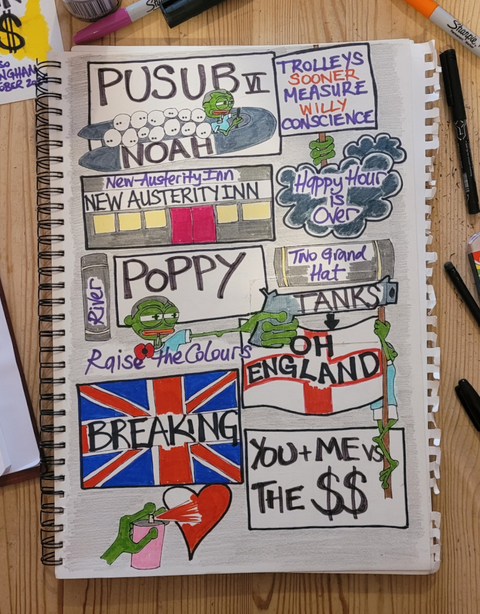 $
NGHAM
PUSUB VI
NOAH
TROLLEYS
SOONER
MEASURE
WILLY
CONSCIENCE
New-Austerity Inn
NEW AUSTERITY INN
Happy Hour
is
Over
River
POPPY
Two Grand
Hat
TANKS
Raise the Colours
OH
ENGLAND
BREAKING
YOU + ME vs
THE $$
Sharpie
Sharpie